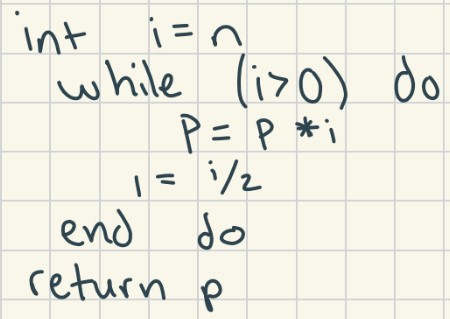 int i = n
while (i>0) do
P = P * i
i = i/2
end do
return p